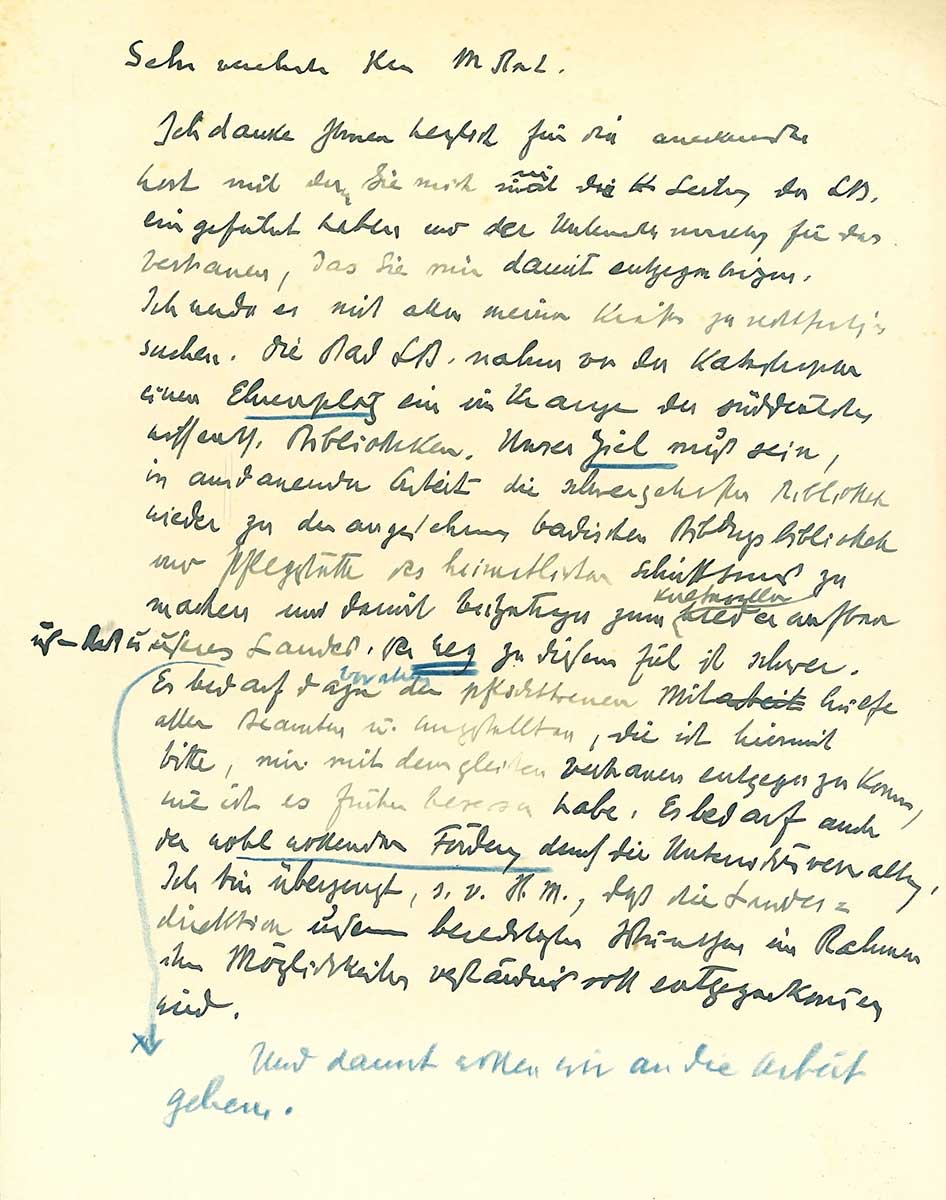 Sehr verehrter Herr M Rat.
Ich danke Ihnen herzlich für die anerkennenden
Worte mit denen Sie mich in die Leitung der LB.
eingeführt haben und der Unterrichtsverwaltung für das
Vertrauen, das Sie mir damit entgegenbringen.
Ich werde es mit allen meinen Kräften zu rechtfertigen
suchen. Die Bad LB. nahm vor der Katastrophe
einen Ehrenplatz ein im Kranze der süddeutschen
wissensch. Bibliotheken. Unser Ziel muß sein,
in ausdauernder Arbeit die schwergetroffene Bibliothek
wieder zu der angesehenen badischen Bildungsbibliothek
und Pflegstätte des heimatlichen Schrifttums zu
kulturellen
machen und damit beizutragen zum Wiederaufbau
unseres Landes. Der Weg zu diesem Ziel ist schwer.
Es bedarf dazu der pflichttreuen Mitarbeit hülfe
aller Beamten u. Angestellten, die ich hiermit
bitte, mir mit dem gleichen Vertrauen entgegen zu kommen,
wie ich es früher besessen habe. Es bedarf auch
der wohlwollenden Förderung durch die Unterrichtsverwaltung,
Ich bin überzeugt, s. v. H. M., daß die Landes=
direktion unsern berechtigten Wünschen im Rahmen
ihrer Möglichkeiten verständnisvoll entgegenkommen
wird.
Und damit wollen wir an die Arbeit
gehen.